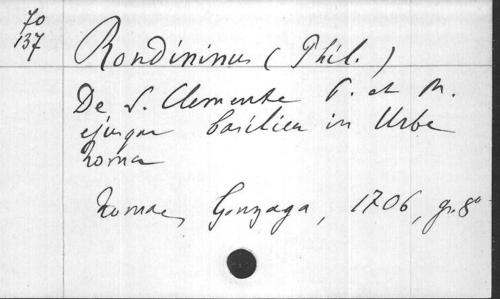 70
137
Rondininus (Phil.)
De S. Clemente P. et M.
ejusque basilica in Urbe
Roma
Romae, Gonzaga, 1706, gr. 8°